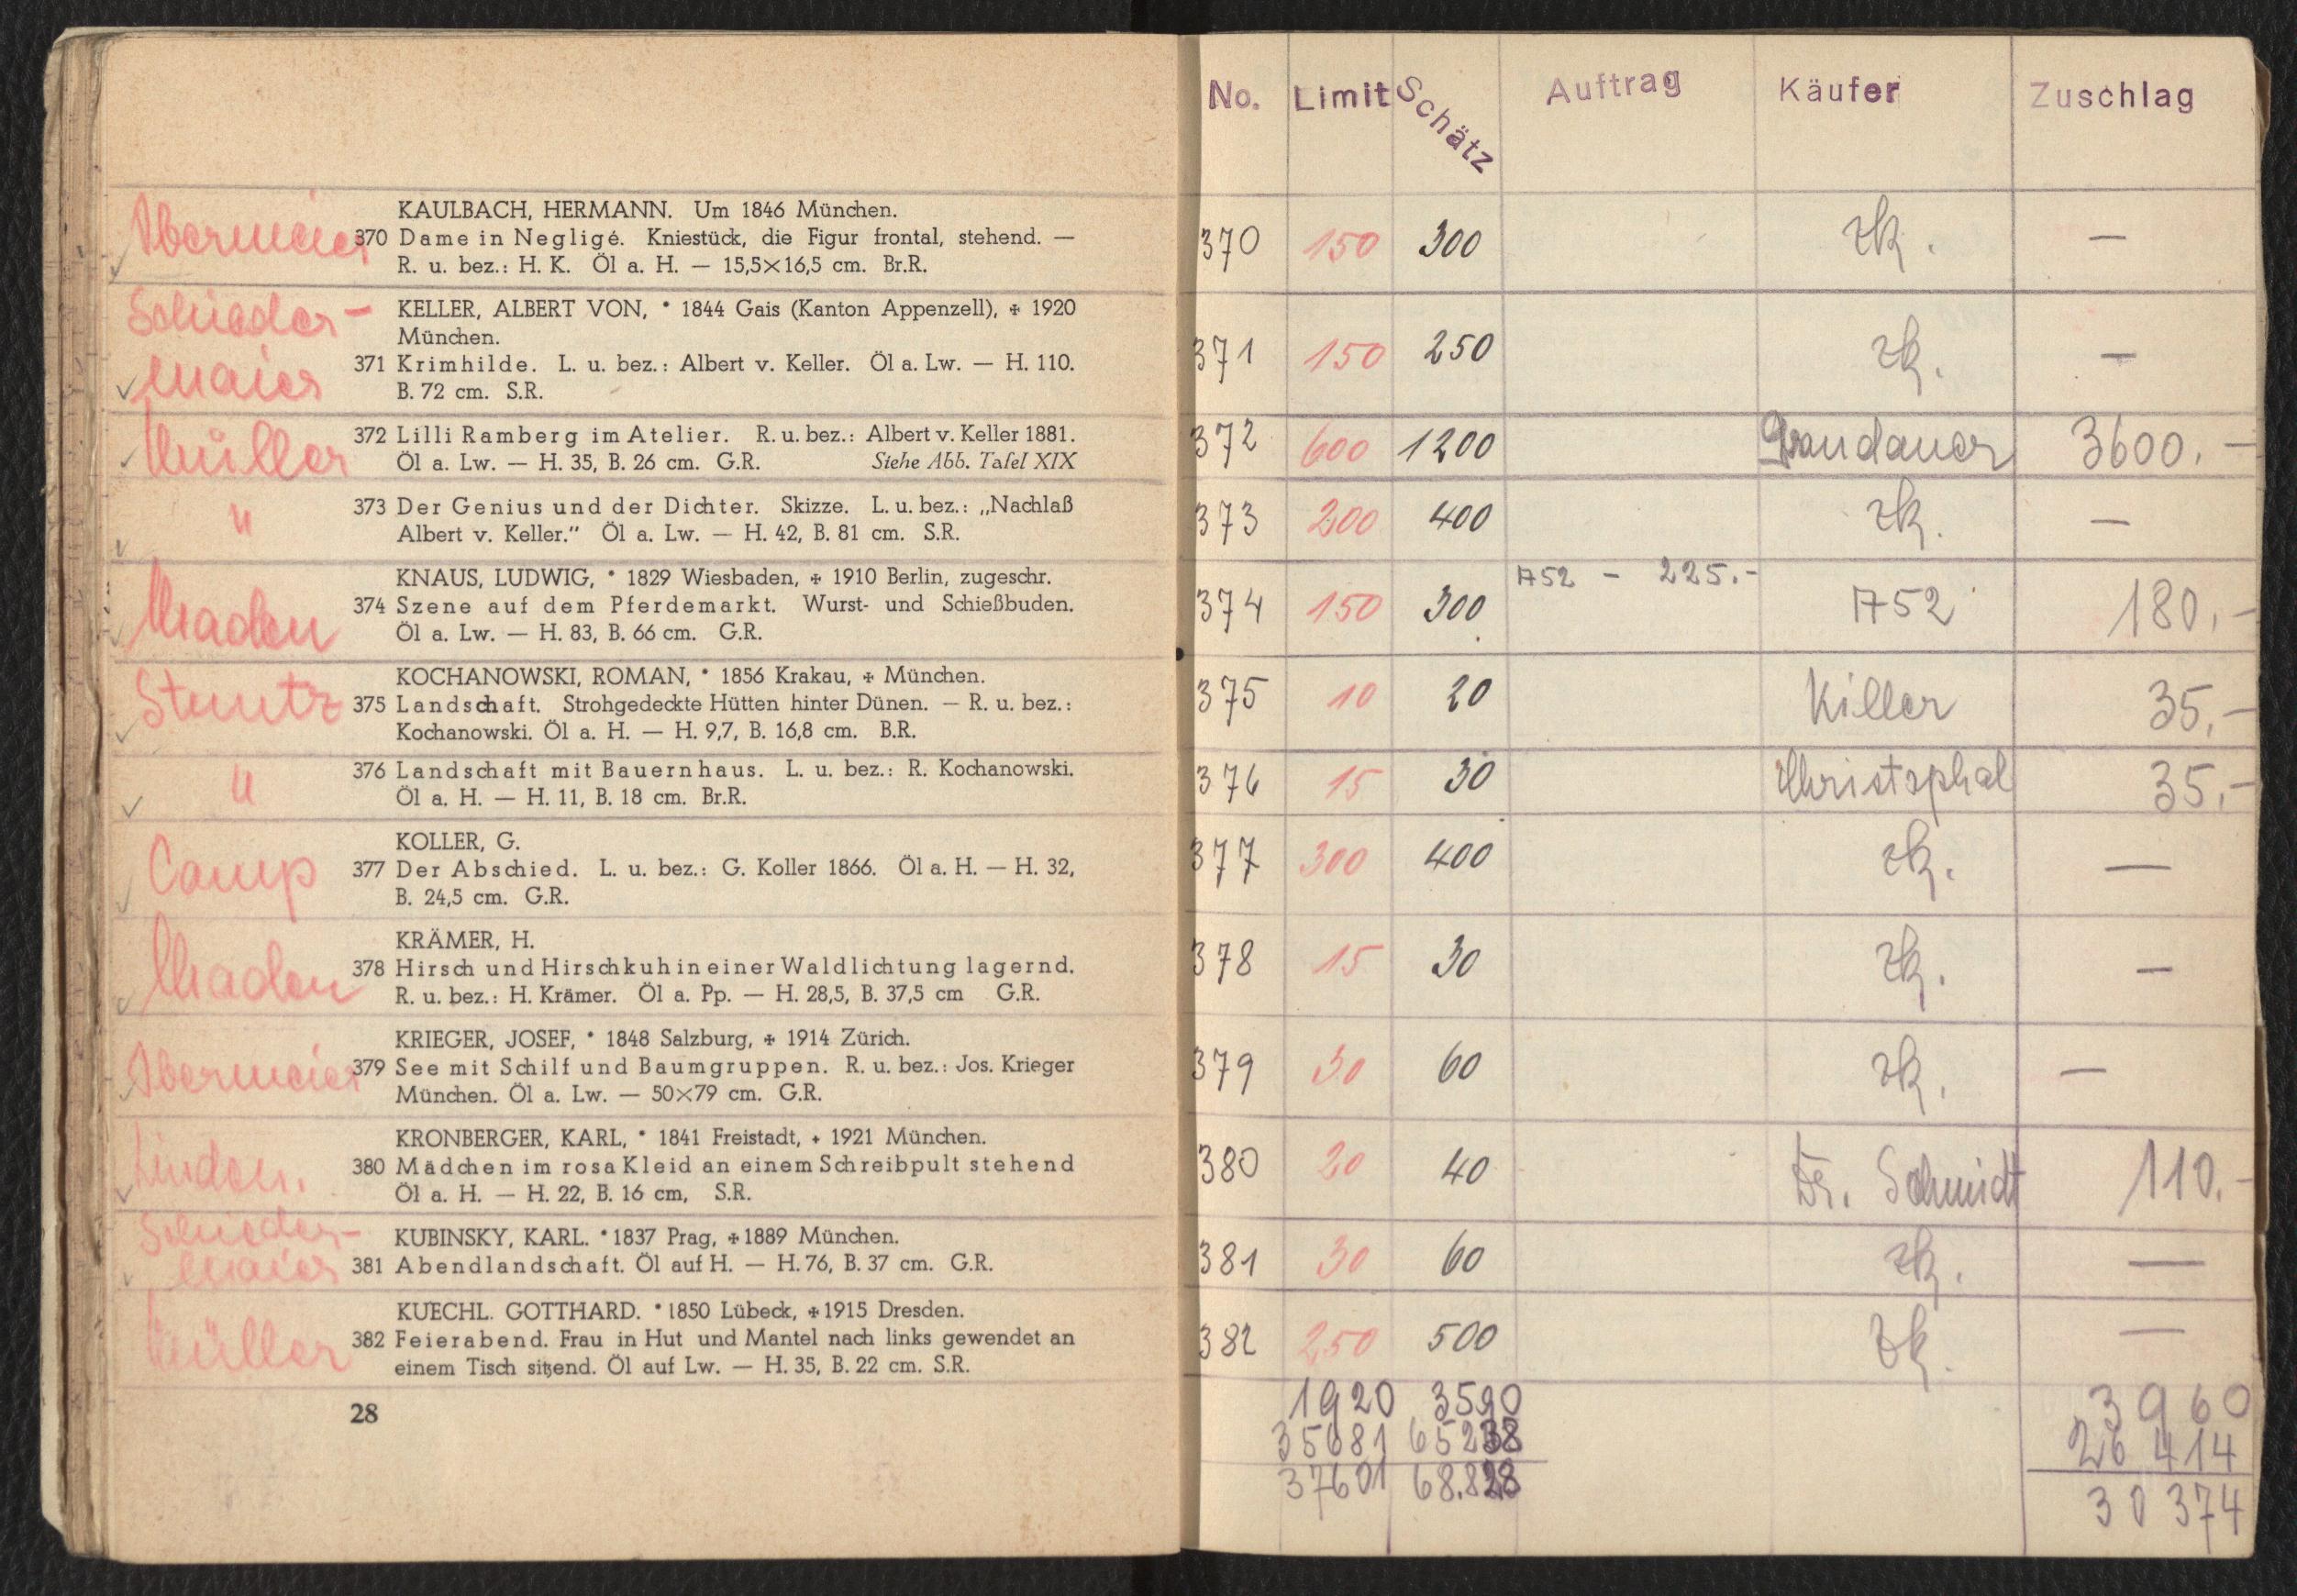 Obermeier
KAULBACH, HERMANN. Um 1846 München.
370 Dame in Negligé. Kniestück, die Figur frontal, stehend. —
R. u. bez.: H. K. Öl a. H. — 15,5×16,5 cm. Br.R.
Schieder-
maier
KELLER, ALBERT VON, * 1844 Gais (Kanton Appenzell), ✠ 1920
München.
371 Krimhilde. L. u. bez.: Albert v. Keller. Öl a. Lw. — H. 110.
B. 72 cm. S.R.
Müller
372 Lilli Ramberg im Atelier. R. u. bez.: Albert v. Keller 1881.
Öl a. Lw. — H. 35, B. 26 cm. G.R. Siehe Abb. Tafel XIX
"
373 Der Genius und der Dichter. Skizze. L. u. bez.: „Nachlaß
Albert v. Keller.“ Öl a. Lw. — H. 42, B. 81 cm. S.R.
Maden
KNAUS, LUDWIG, * 1829 Wiesbaden, ✠ 1910 Berlin, zugeschr.
374 Szene auf dem Pferdemarkt. Wurst- und Schießbuden.
Öl a. Lw. — H. 83, B. 66 cm. G.R.
Stuntz
KOCHANOWSKI, ROMAN, * 1856 Krakau, ✠ München.
375 Landschaft. Strohgedeckte Hütten hinter Dünen. — R. u. bez.:
Kochanowski. Öl a. H. — H. 9,7, B. 16,8 cm. B.R.
"
376 Landschaft mit Bauernhaus. L. u. bez.: R. Kochanowski.
Öl a. H. — H. 11, B. 18 cm. Br.R.
Camp
KOLLER, G.
377 Der Abschied. L. u. bez.: G. Koller 1866. Öl a. H. — H. 32,
B. 24,5 cm. G.R.
Maden
KRÄMER, H.
378 Hirsch und Hirschkuh in einer Waldlichtung lagernd.
R. u. bez.: H. Krämer. Öl a. Pp. — H. 28,5, B. 37,5 cm G.R.
Obermeier
KRIEGER, JOSEF, * 1848 Salzburg, ✠ 1914 Zürich.
379 See mit Schilf und Baumgruppen. R. u. bez.: Jos. Krieger
München. Öl a. Lw. — 50×79 cm. G.R.
Linden.
KRONBERGER, KARL, * 1841 Freistadt, + 1921 München.
380 Mädchen im rosa Kleid an einem Schreibpult stehend
Öl a. H. — H. 22, B. 16 cm, S.R.
Schieder-
maier
KUBINSKY, KARL. * 1837 Prag, ✠ 1889 München.
381 Abendlandschaft. Öl auf H. — H. 76, B. 37 cm. G.R.
Müller
KUECHL. GOTTHARD. * 1850 Lübeck, ✠ 1915 Dresden.
382 Feierabend. Frau in Hut und Mantel nach links gewendet an
einem Tisch sitzend. Öl auf Lw. — H. 35, B. 22 cm. S.R.
28
No. Limit Schätz Auftrag Käufer Zuschlag
370 150 300 zk. —
371 150 250 zk. —
372 600 1200 Grandauer 3600.—
373 200 400 zk. —
1752 - 225.-
374 150 300 1752 180.—
375 10 20 Killer 35.—
376 15 30 Christophal 35.—
377 300 400 zk. —
378 15 30 zk. —
379 30 60 zk. —
380 20 40 Dr. Schmidt 110.—
381 30 60 zk. —
382 250 500 zk. —
1920 3590 3960
35681 65238 26 414
37601 68.828 30 374